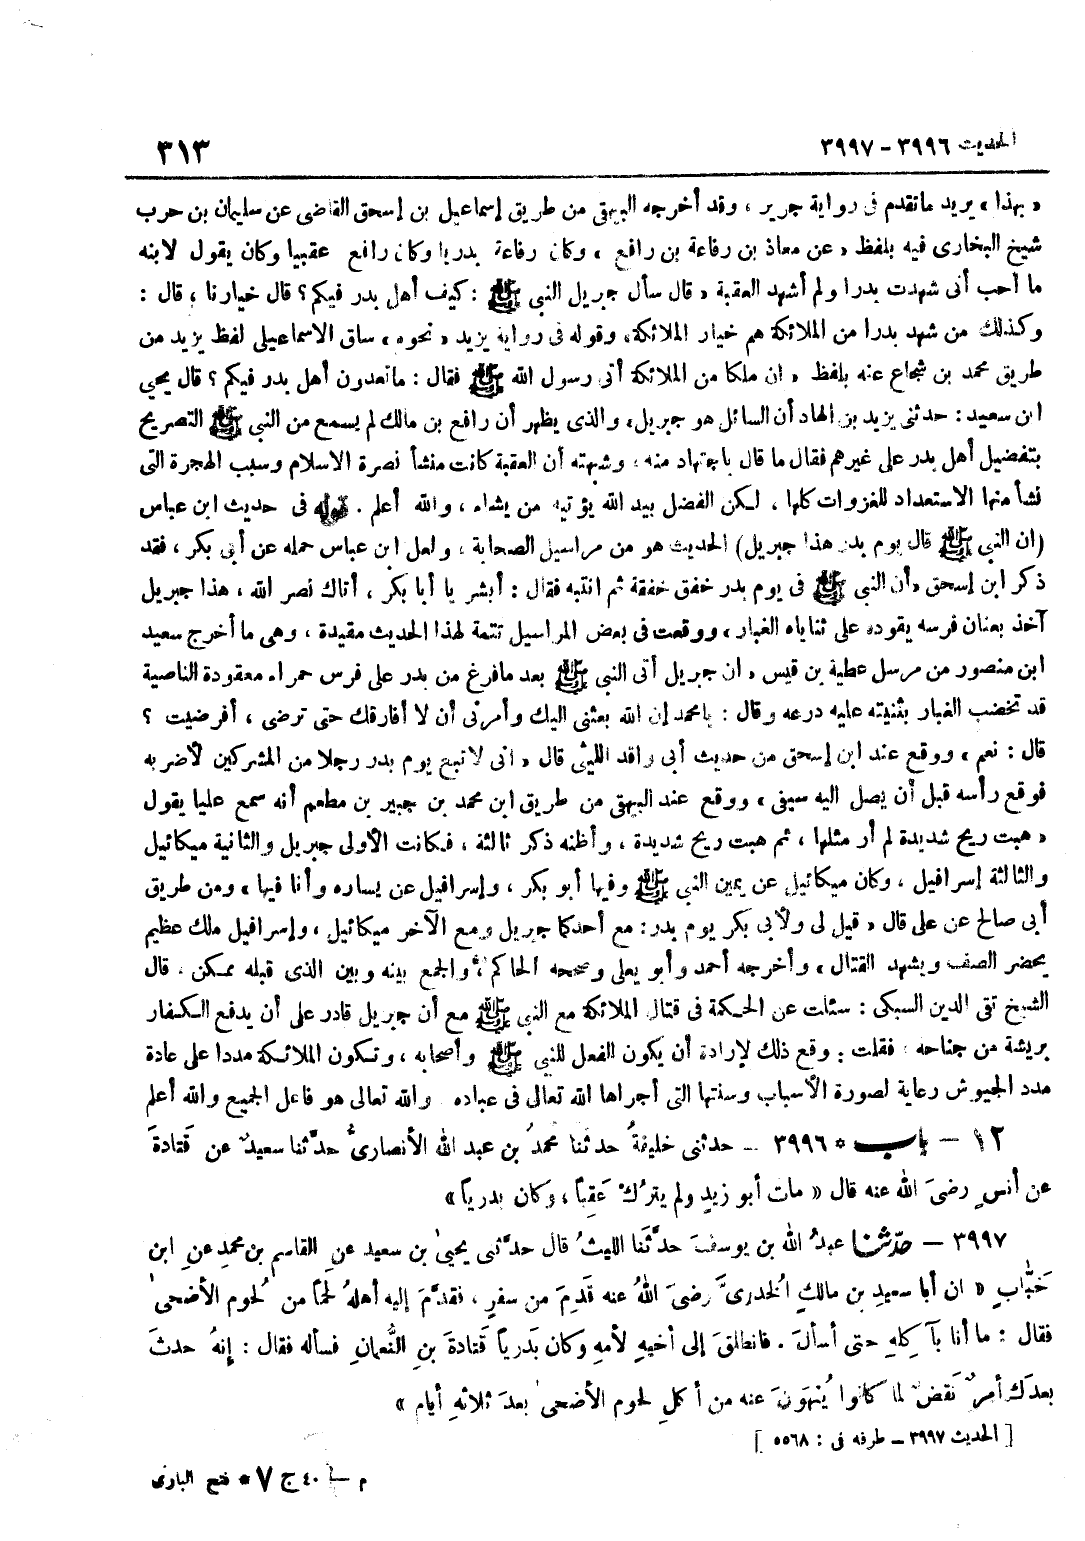 الحديث ٣٩٩٦ - ٣٩٩٧
٣١٣
« بهذا » يريد ماتقدم فى رواية جرير ، وقد أخرجه البيهقى من طريق إسماعيل بن إسحق القاضى عن سليمان بن حرب
شيخ البخارى فيه بلفظ « عن معاذ بن رفاعة بن رافع ، وكان رفاعة بدريا وكان رافع عقبيا وكان يقول لابنه
ما أحب أنى شهدت بدرا ولم أشهد العقبة « قال سأل جبريل النبى ﷺ : كيف أهل بدر فيكم ؟ قال خيارنا ، قال :
وكذلك من شهد بدرا من الملائكة هم خيار الملائكة ، وقوله فى رواية يزيد « نحوه » ساق الاسماعيلى لفظ يزيد من
طريق محمد بن شجاع عنه بلفظ « ان ملكا من الملائكة أتى رسول الله ﷺ فقال : ماتعدون أهل بدر فيكم ؟ قال يحيى
ابن سعيد : حدثنى يزيد بن الهاد أن السائل هو جبريل ، والذى يظهر أن رافع بن مالك لم يسمع من النبى ﷺ التصريح
بتفضيل أهل بدر على غيرهم فقال ما قال باجتهاد منه ، وشبهته أن العقبة كانت منشأ نصرة الاسلام وسبب الهجرة التى
نشأ منها الاستعداد للغزوات كلها ، لكن الفضل بيد الله يؤتيه من يشاء ، والله أعلم . قوله فى حديث ابن عباس
( ان النبى ﷺ قال يوم بدر هذا جبريل ) الحديث هو من مراسيل الصحابة ، ولعل ابن عباس حمله عن أبى بكر ، فقد
ذكر ابن إسحق « أن النبى ﷺ فى يوم بدر خفق خفقة ثم انتبه فقال : أبشر يا أبا بكر ، أتاك نصر الله ، هذا جبريل
آخذ بعنان فرسه يقوده على ثناياه الغبار ، ووقعت فى بعض المراسيل تتمة لهذا الحديث مقيدة ، وهى ما أخرج سعيد
ابن منصور من مرسل عطية بن قيس « ان جبريل أتى النبى ﷺ بعد مافرغ من بدر على فرس حمراء معقودة الناصية
قد تخضب الغبار بثنيته عليه درعه وقال : يامحمد إن الله بعثنى اليك وأمرنى أن لا أفارقك حتى ترضى ، أفرضيت ؟
قال : نعم ، ووقع عند ابن إسحق من حديث أبى واقد الليثى قال « انى لاتبع يوم بدر رجلا من المشركين لأضربه
فوقع رأسه قبل أن يصل اليه سيفى » ووقع عند البيهقى من طريق ابن محمد بن جبير بن مطعم أنه سمع عليا يقول
« هبت ريح شديدة لم أر مثلها ، ثم هبت ريح شديدة ، وأظنه ذكر ثالثة ، فكانت الأولى جبريل والثانية ميكائيل
والثالثة إسرافيل ، وكان ميكائيل عن يمين النبى ﷺ وفيها أبو بكر ، وإسرافيل عن يساره وأنا فيها » ومن طريق
أبى صالح عن على قال « قيل لى ولأبى بكر يوم بدر : مع أحدكما جبريل ومع الآخر ميكائيل ، وإسرافيل ملك عظيم
يحضر الصف ويشهد القتال » وأخرجه أحمد وأبو يعلى وصححه الحاكم ، والجمع بينه وبين الذى قبله ممكن . قال
الشيخ تقى الدين السبكى : سئلت عن الحكمة فى قتال الملائكة مع النبى ﷺ مع أن جبريل قادر على أن يدفع الكفار
بريشة من جناحه ، فقلت : وقع ذلك لإرادة أن يكون الفعل للنبى ﷺ وأصحابه ، وتكون الملائكة مددا على عادة
مدد الجيوش رعاية لصورة الأسباب وسنتها التى أجراها الله تعالى فى عباده والله تعالى هو فاعل الجميع والله أعلم
١٢ - باب * ٣٩٩٦ - حدثنى خليفةُ حدثنا محمدُ بن عبد الله الأنصارىُّ حدَّثنا سعيدٌ عن قَتادةَ
عن أنسٍ رضىَ الله عنه قال « مات أبو زيدٍ ولم يترُكْ عَقِباً ، وكان بدرياً »
٣٩٩٧ - حدّثنا عبدُ الله بن يوسفَ حدَّثَنا الليثُ قال حدَّثنى يحيىٰ بن سعيد عنِ القاسم بن محمدٍ عنِ ابن
خَبّابٍ « ان أبا سعيدِ بن مالكٍ الخدرىَّ رضىَ اللهُ عنه قَدِمَ من سفرٍ ، فقدَّمَ إليه أهلهُ لحماً من لُحوم الأضحىٰ
فقال : ما أنا بآكِلهِ حتى أسألَ . فانطلقَ إلى أخيهِ لأمهِ وكان بَدرياً قَتادةَ بنِ النُّعمانِ فسأله فقال : إنهُ حدثَ
بعدَك أمرٌ نَقضٌ لما كانوا يُنهَونَ عنه من أكلِ لحوم الأضحىٰ بعدَ ثلاثةِ أيام »
[ الحديث ٣٩٩٧ - طرفه فى : ٥٥٦٨ ]
م - ٤٠ ج ٧ * فتح البارى